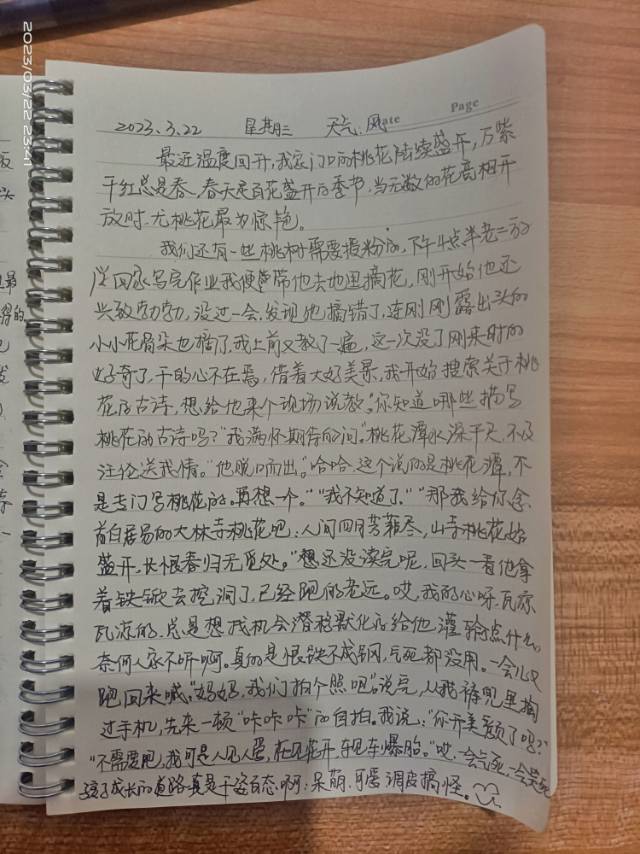 2023/03/22 23:41
Date Page
2023.3.22 星期三 天气:风
最近温度回升,我家门口的桃花陆续盛开,万紫
千红总是春,春天是百花盛开的季节,当无数的花竞相开
放时,尤桃花最为惊艳。
我们还有一些桃树需要授粉的,下午4点半老二放
学回家写完作业我便带他去地里摘花,刚开始他还
兴致勃勃,没过一会,发现他摘错了,连刚刚露出头的
小小花骨朵也摘了,我上前又教了一遍,这一次没了刚来时的
好奇了,干的心不在焉,借着大好美景,我开始搜索关于桃
花的古诗,想给他来个现场说教。"你知道哪些描写
桃花的古诗吗?"我满怀期待的问。"桃花潭水深千尺,不及
汪伦送我情。"他脱口而出。"哈哈,这个说的是桃花潭,不
是专门写桃花的。再想一个。""我不知道了。""那我给你念
首白居易的大林寺桃花吧:人间四月芳菲尽,山寺桃花始
盛开,长恨春归无觅处。"想还没读完呢,回头一看他拿
着铁锨去挖洞了,已经跑的老远。哎,我的心呀,瓦凉
瓦凉的,总是想找机会潜移默化的给他灌输点什么,
奈何人家不听啊。真的是恨铁不成钢,气死都没用。一会儿又
跑回来喊"妈妈,我们拍个照吧"。说完,从我裤兜里掏
过手机,先来一顿"咔咔咔"的自拍。我说:"你开美颜了吗?"
"不需要吧,我可是人见人爱,花见花开,车见车爆胎。"哎,一会气死,一会笑死
孩子成长的道路真是千姿百态啊:呆萌,可爱,调皮搞怪。